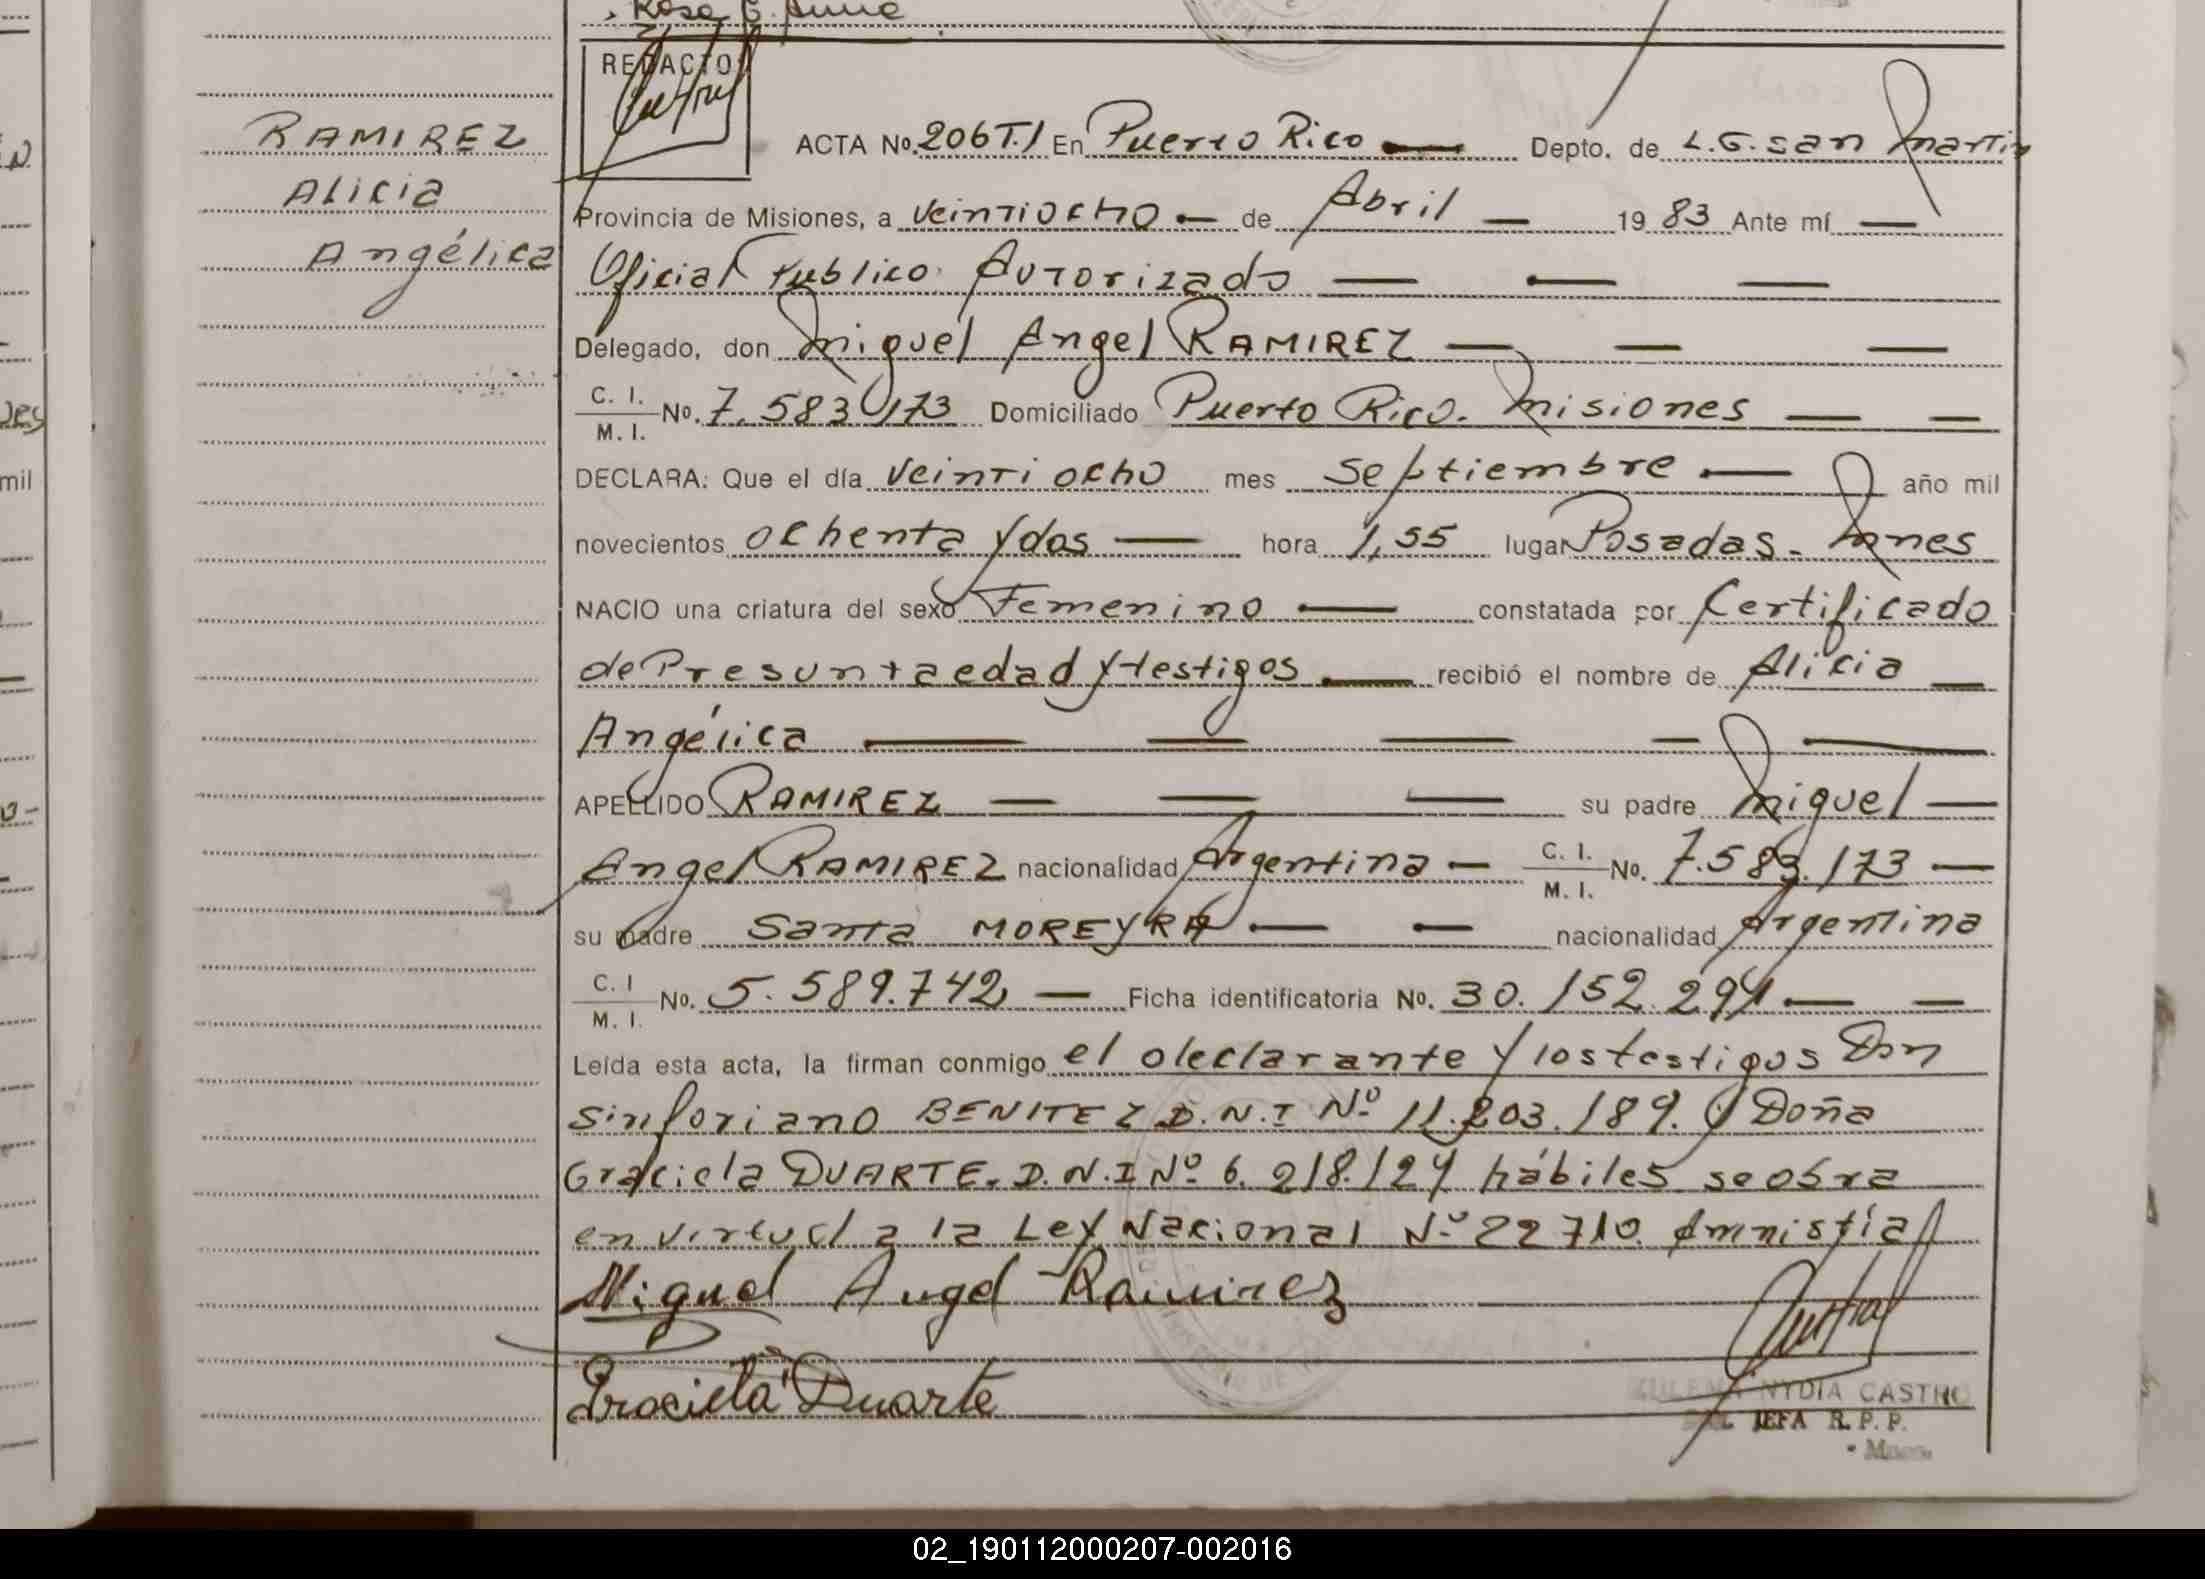 Rosa G.
REDACTO
RAMIREZ
Alicia
Angélica
ACTA No. 206 T.I En Puerto Rico — Depto. de L.G. San Martin
Provincia de Misiones, a veintiocho — de Abril — 1983 Ante mí —
Oficial Publico Autorizado — — —
Delegado, don Miguel Angel RAMIREZ — — —
C. I. / M. I. No. 7.583.173 Domiciliado Puerto Rico. Misiones — —
DECLARA: Que el día veintiocho mes Septiembre — año mil
novecientos ochenta y dos — hora 1,55 lugar Posadas. Mnes
NACIO una criatura del sexo Femenino — constatada por Certificado
de Presunta edad y testigos — recibió el nombre de Alicia —
Angélica — — — — —
APELLIDO RAMIREZ — — — su padre Miguel —
Angel RAMIREZ nacionalidad Argentina — C. I. / M. I. No. 7.583.173 —
su madre Santa MOREYRA — — nacionalidad Argentina
C. I / M. I. No. 5.589.742 — Ficha identificatoria No. 30.152.294 — —
Leída esta acta, la firman conmigo el declarante y los testigos Don
Sinforiano BENITEZ D.N.I Nº 11.203.189. y Doña
Graciela DUARTE. D.N.I Nº 6.218.124 hábiles se obra
en virtud a la Ley Nacional Nº 22710 Amnistía
Miguel Angel Ramirez
Graciela Duarte
ZULEMA NYDIA CASTRO
JEFA R. P. P.
02_190112000207-002016